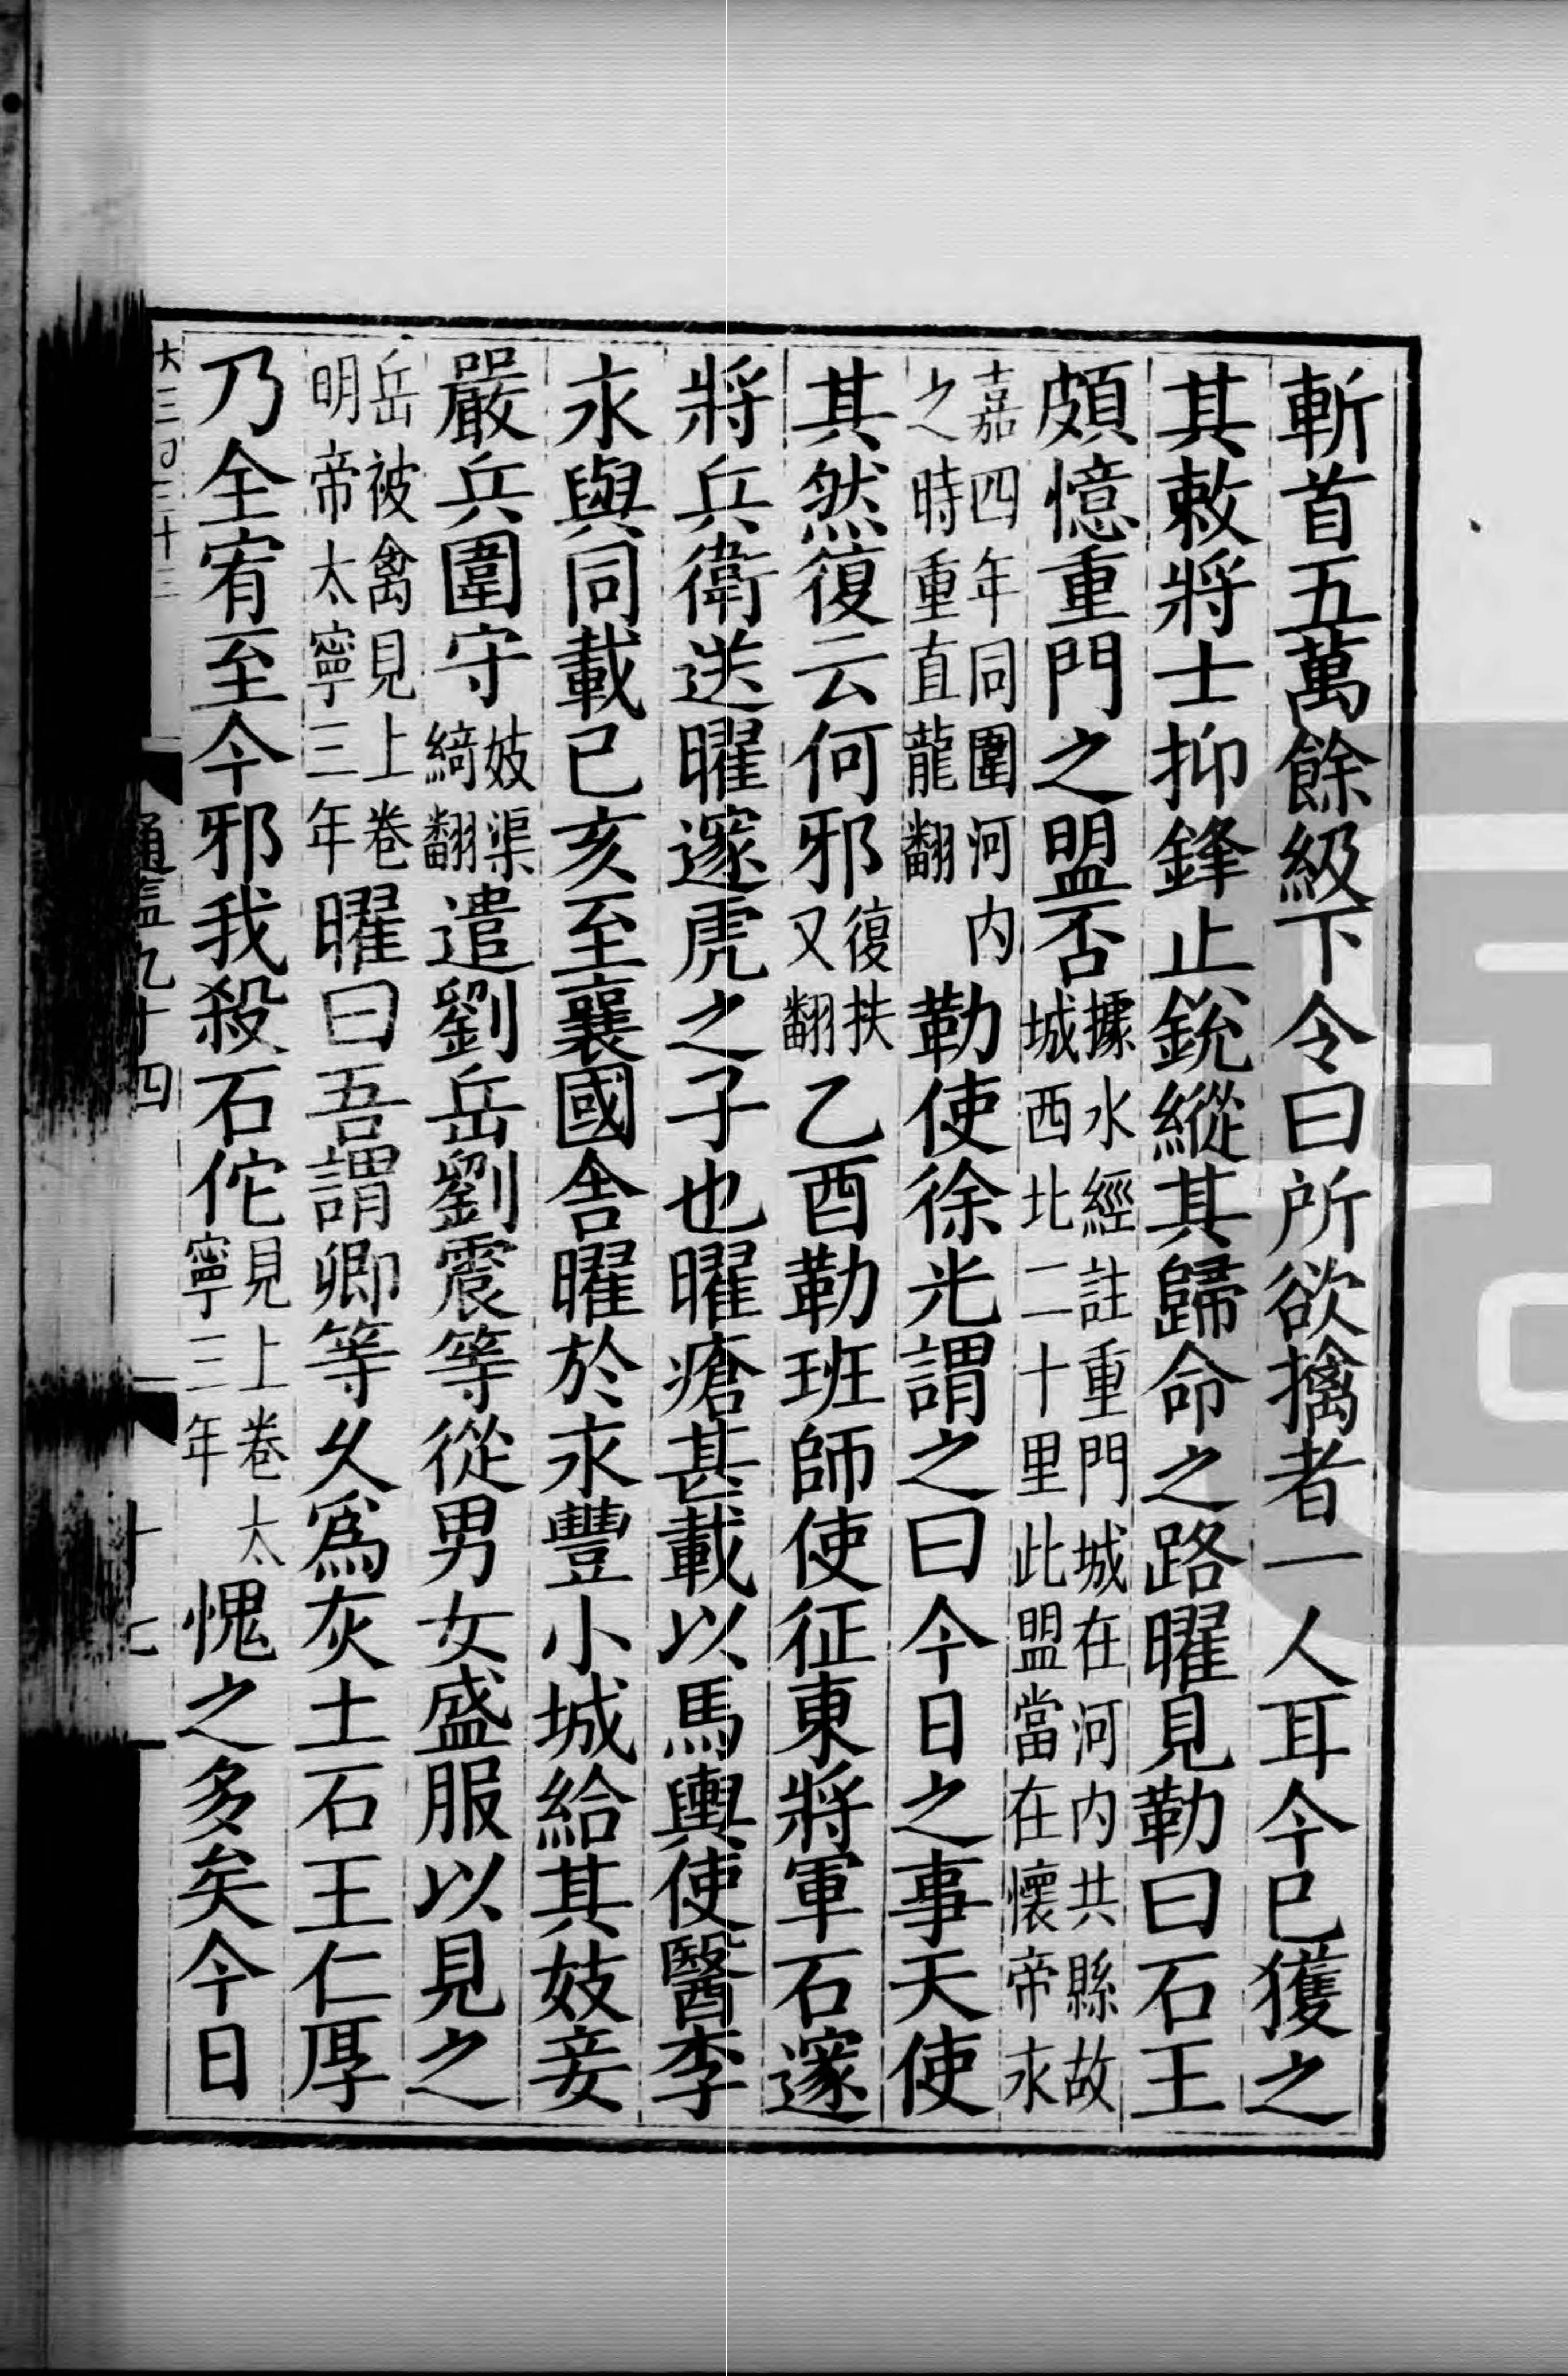 斬首五萬餘級下令曰所欲擒者一人耳今已獲之
其敕將士抑鋒止銳縱其歸命之路曜見勒曰石王
頗憶重門之盟否據水經註重門城在河内共縣故城西北二十里此盟當在懷帝永
嘉四年同圍河内之時重直龍翻勒使徐光謂之曰今日之事天使
其然復云何邪復扶又翻乙酉勒班師使征東將軍石邃
將兵衛送曜邃虎之子也曜瘡甚載以馬輿使醫李
永與同載己亥至襄國舍曜於永豐小城給其妓妾
嚴兵圍守妓渠綺翻遣劉岳劉震等從男女盛服以見之
岳被禽見上卷明帝太寧三年曜曰吾謂卿等久爲灰土石王仁厚
乃全宥至今邪我殺石佗見上卷太寧三年愧之多矣今日
通鑑九十四
十七